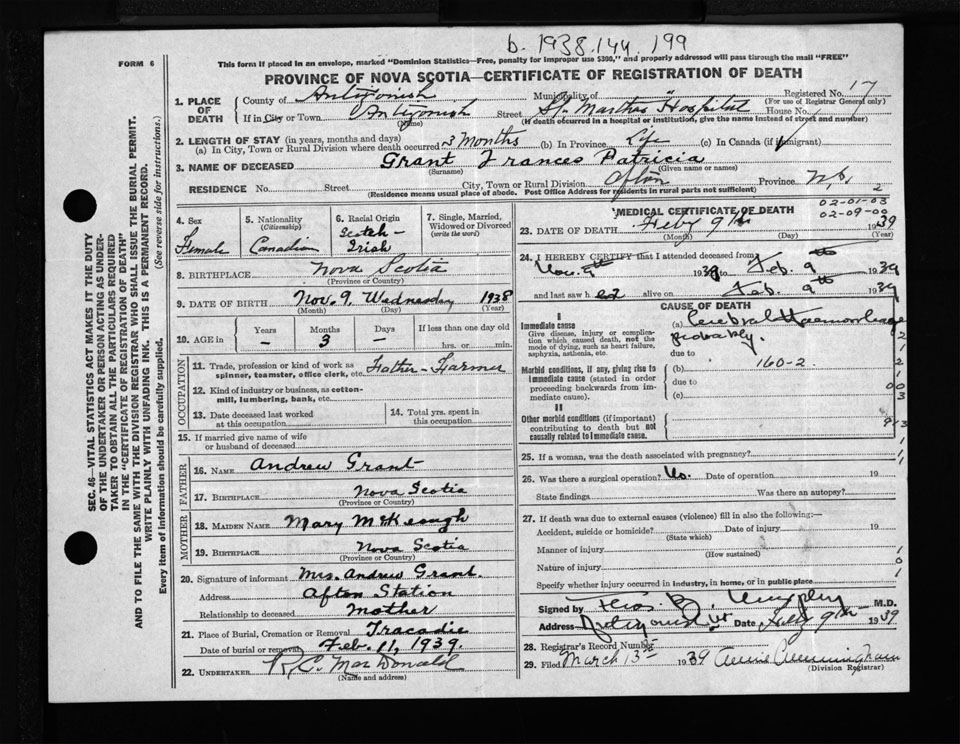 b. 1938.144.199
FORM 6
This form if placed in an envelope, marked "Dominion Statistics—Free, penalty for improper use $300," and properly addressed will pass through the mail "FREE"
PROVINCE OF NOVA SCOTIA—CERTIFICATE OF REGISTRATION OF DEATH
SEC. 46—VITAL STATISTICS ACT MAKES IT THE DUTY
OF THE UNDERTAKER OR PERSON ACTING AS UNDER-
TAKER TO OBTAIN ALL THE PARTICULARS REQUIRED
IN THE "CERTIFICATE OF REGISTRATION OF DEATH"
AND TO FILE THE SAME WITH THE DIVISION REGISTRAR WHO SHALL ISSUE THE BURIAL PERMIT.
WRITE PLAINLY WITH UNFADING INK. THIS IS A PERMANENT RECORD.
Every item of information should be carefully supplied. (See reverse side for instructions.)
1. PLACE OF DEATH
County of Antigonish Municipality of Registered No. 17
(For use of Registrar General only)
If in City or Town Antigonish Street St. Martha's Hospital House No.
(Name) (If death occurred in a hospital or institution, give the name instead of street and number)
2. LENGTH OF STAY (in years, months and days)
(a) In City, Town or Rural Division where death occurred 3 months (b) In Province Life (c) In Canada (if immigrant)
3. NAME OF DECEASED Grant Frances Patricia
(Surname) (Given name or names)
RESIDENCE No. Street City, Town or Rural Division Afton Province N.S.
(Residence means usual place of abode. Post Office Address for residents in rural parts not sufficient)
4. Sex Female
5. Nationality (Citizenship) Canadian
6. Racial Origin Scotch-Irish
7. Single, Married, Widowed or Divorced (write the word)
8. BIRTHPLACE Nova Scotia
(Province or Country)
9. DATE OF BIRTH Nov. 9, Wednesday 1938
(Month) (Day) (Year)
10. AGE IN Years – Months 3 Days – If less than one day old hrs. or min.
OCCUPATION
11. Trade, profession or kind of work as spinner, teamster, office clerk, etc. Father-Farmer
12. Kind of industry or business, as cotton-mill, lumbering, bank, etc.
13. Date deceased last worked at this occupation
14. Total yrs. spent in this occupation
15. If married give name of wife or husband of deceased
FATHER
16. NAME Andrew Grant
17. BIRTHPLACE Nova Scotia
(Province or Country)
MOTHER
18. MAIDEN NAME Mary McKeough
19. BIRTHPLACE Nova Scotia
(Province or Country)
20. Signature of informant Mrs. Andrew Grant.
Address Afton Station
Relationship to deceased Mother
21. Place of Burial, Cremation or Removal Tracadie
Date of burial or removal Feb. 11, 1939.
22. UNDERTAKER R.C. MacDonald
(Name and address)
02-01-03
02-09-00
MEDICAL CERTIFICATE OF DEATH
23. DATE OF DEATH Feby 9th 1939
(Month) (Day) (Year)
24. I HEREBY CERTIFY that I attended deceased from
Nov. 9th 1938 to Feb. 9th 1939
and last saw h er alive on Feb. 9th 1939
CAUSE OF DEATH
I
Immediate cause
Give disease, injury or complication which caused death, not the mode of dying, such as heart failure, asphyxia, asthenia, etc.
(a) Cerebral Haemorrhage
probably.
due to
Morbid conditions, if any, giving rise to immediate cause (stated in order proceeding backwards from immediate cause).
(b) 160-2
due to
(c)
II
Other morbid conditions (if important) contributing to death but not causally related to immediate cause.
25. If a woman, was the death associated with pregnancy?
26. Was there a surgical operation? No. Date of operation 19
State findings Was there an autopsy?
27. If death was due to external causes (violence) fill in also the following:—
Accident, suicide or homicide? Date of injury 19
(State which)
Manner of injury
(How sustained)
Nature of injury
Specify whether injury occurred in industry, in home, or in public place
Signed by Thos. B. Murphy M.D.
Address Antigonish Date Feby 9th 1939
28. Registrar's Record Number
29. Filed March 13th 1939 Annie Cunningham
(Division Registrar)